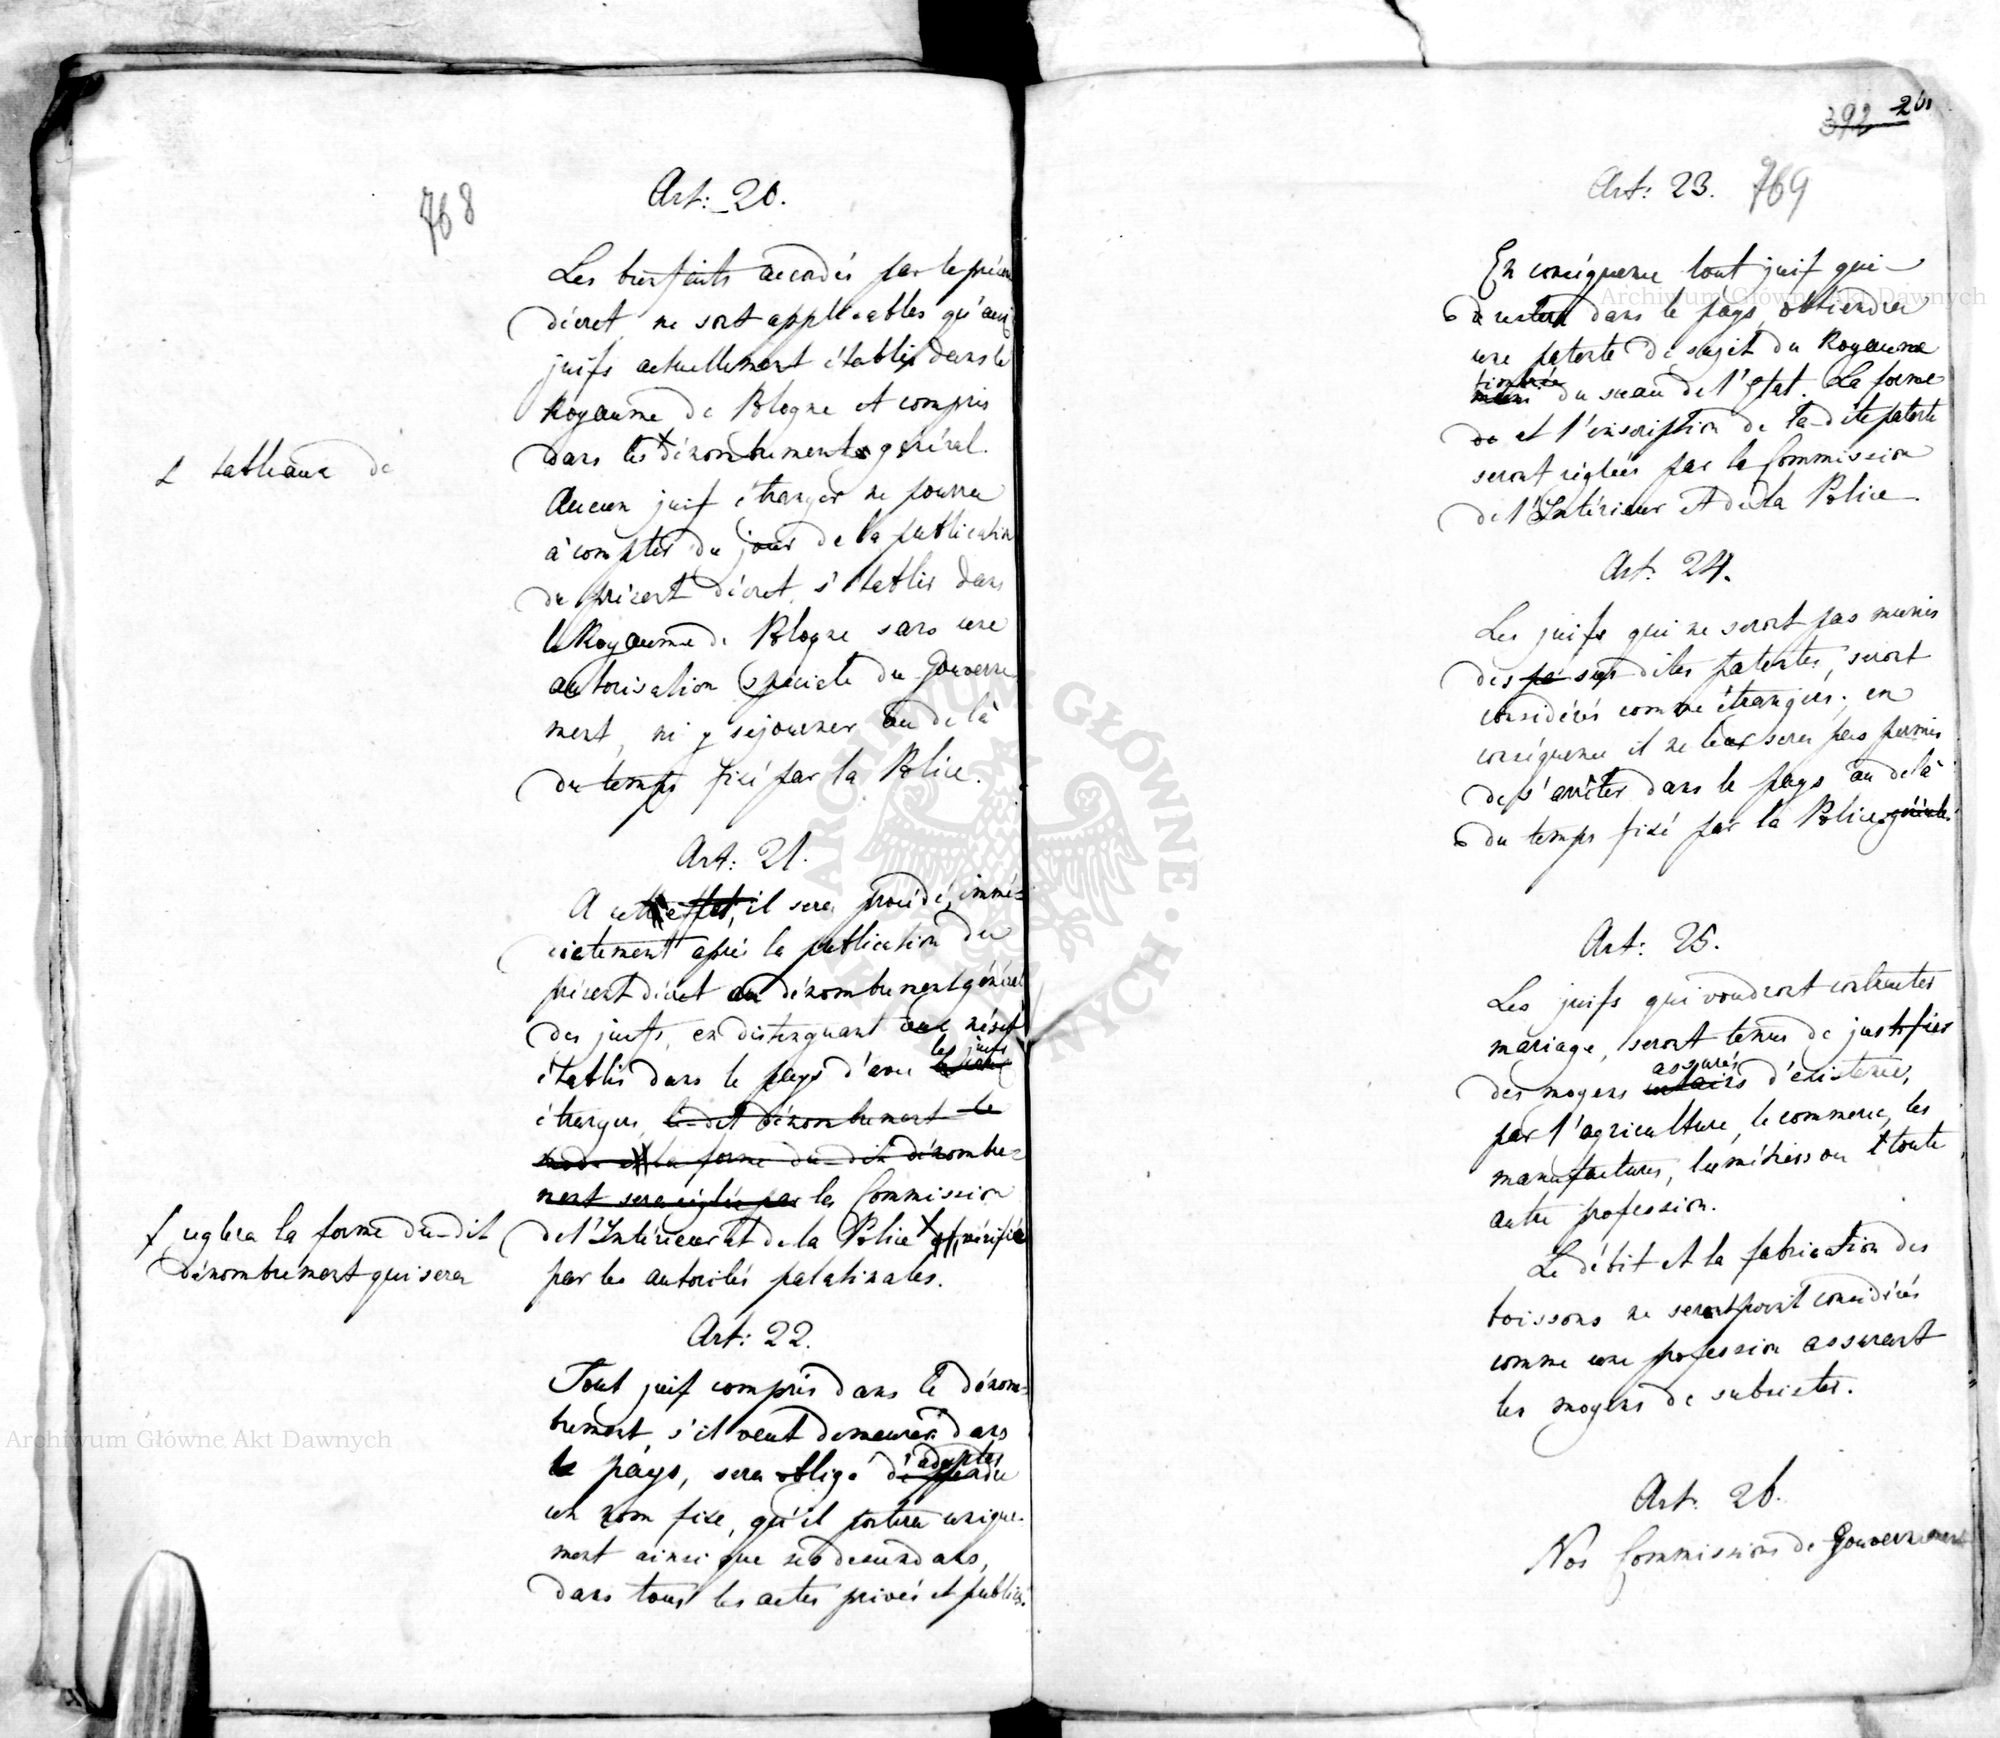 768
Art: 20.
Les bienfaits accordés par le présent
décret, ne sont applicables qu'aux
juifs actuellement établis dans le
Royaume de Pologne et compris
dans les dénombrements général.
⨯ tableaux de
Aucun juif étranger ne pourra
à compter du jour de la publication
du présent décret, s'établir dans
le Royaume de Pologne sans une
autorisation spéciale du Gouverne-
ment, ni y séjourner au delà
du temps fixé par la Police.
Art: 21.
A cet effet, il sera procédé, immé-
diatement après la publication du
présent décret au dénombrement général
des juifs, en distinguant ceux nés et
les juifs
établis dans le pays d'avec
étrangers, le dit dénombrement le
mode et la forme du-dit dénombre-
ment sera réglée par la Commission
de l'Intérieur et de la Police ⨯ vérifié
⨯ reglera la forme du-dit
dénombrement qui sera
par les autorités palatinales.
Art: 22.
Tout juif compris dans le dénom-
brement, s'il veut demeurer dans
d'adopter
le pays, sera obligé de prendre
un nom fixe, qu'il portera unique-
ment ainsi que ses descendans,
dans tous les actes privés et publics.
392 201
Art: 23. 769
En conséquence tout juif qui
restera dans le pays, obtiendra
une patente de sujet du Royaume
timbrée
munie du sceau de l'Etat. La forme
de et l'inscription de la-dite patente
seront réglées par la Commission
de l'Intérieur et de la Police.
Art: 24.
Les juifs qui ne seront pas munis
des pa susdites patentes, seront
considérés comme étrangers; en
conséquence il ne leur sera pas permis
de s'arrêter dans le pays au delà
du temps fixé par la Police générale
Art: 25.
Les juifs qui voudront contracter
mariage, seront tenus de justifier
assurés
des moyens certains d'existence,
par l'agriculture, le commerce, les
manufactures, les métiers ou toute
autre profession.
Le débit et la fabrication des
boissons ne seront point considérés
comme une profession assurant
les moyens de subsister.
Art. 26.
Nos Commissions de Gouvernement
Archiwum Główne Akt Dawnych
Archiwum Główne Akt Dawnych